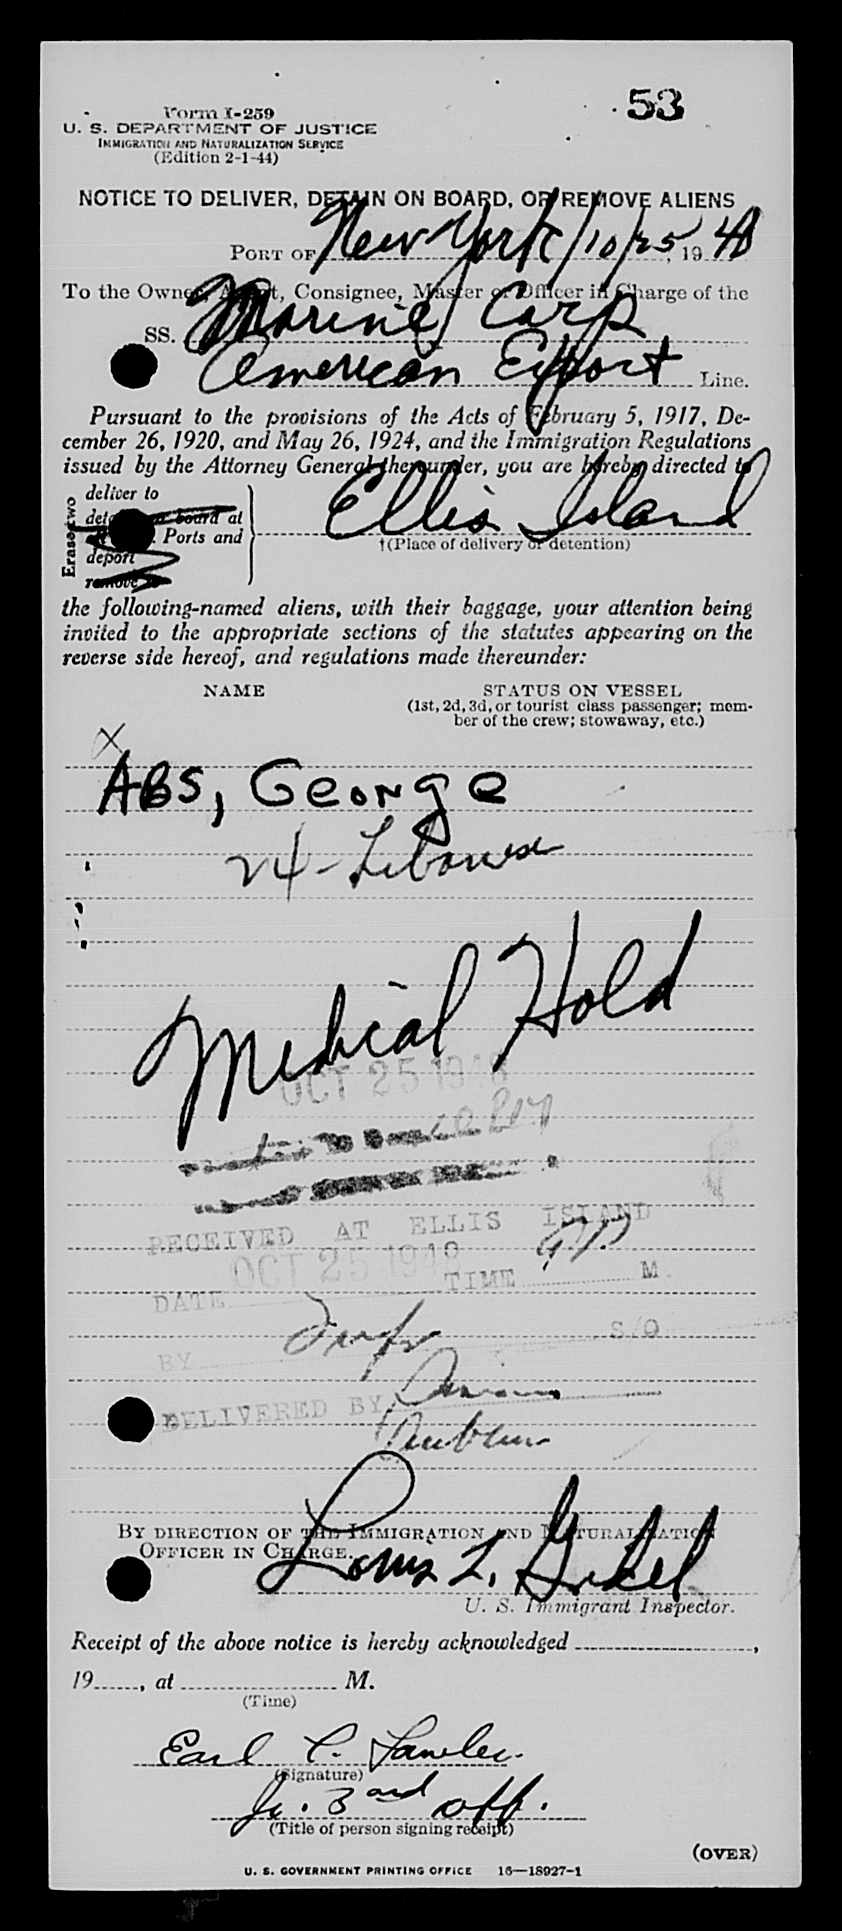 53
Form I-259
U. S. DEPARTMENT OF JUSTICE
IMMIGRATION AND NATURALIZATION SERVICE
(Edition 2-1-44)
NOTICE TO DELIVER, DETAIN ON BOARD, OR REMOVE ALIENS
PORT OF New York / 10/25, 1948
To the Owner, Agent, Consignee, Master or Officer in Charge of the
SS. Marine Carp
American Export Line.
Pursuant to the provisions of the Acts of February 5, 1917, De-
cember 26, 1920, and May 26, 1924, and the Immigration Regulations
issued by the Attorney General thereunder, you are hereby directed to
Erase two
deliver to
detain on board at
Ports and
deport
remove to
Ellis Island
†(Place of delivery or detention)
the following-named aliens, with their baggage, your attention being
invited to the appropriate sections of the statutes appearing on the
reverse side hereof, and regulations made thereunder:
NAME STATUS ON VESSEL
(1st, 2d, 3d, or tourist class passenger; mem-
ber of the crew; stowaway, etc.)
X
ABS, George
24 - Lebanese
Medical Hold
OCT 25 1948
RECEIVED AT ELLIS ISLAND
DATE OCT 25 1948 TIME M.
BY S/O
DELIVERED BY
BY DIRECTION OF THE IMMIGRATION AND NATURALIZATION
OFFICER IN CHARGE.
Louis L.
U. S. Immigrant Inspector.
Receipt of the above notice is hereby acknowledged ,
19 , at M.
(Time)
Earl C. Lawler
(Signature)
Jr. 3rd off.
(Title of person signing receipt)
(OVER)
U. S. GOVERNMENT PRINTING OFFICE 16—18927-1